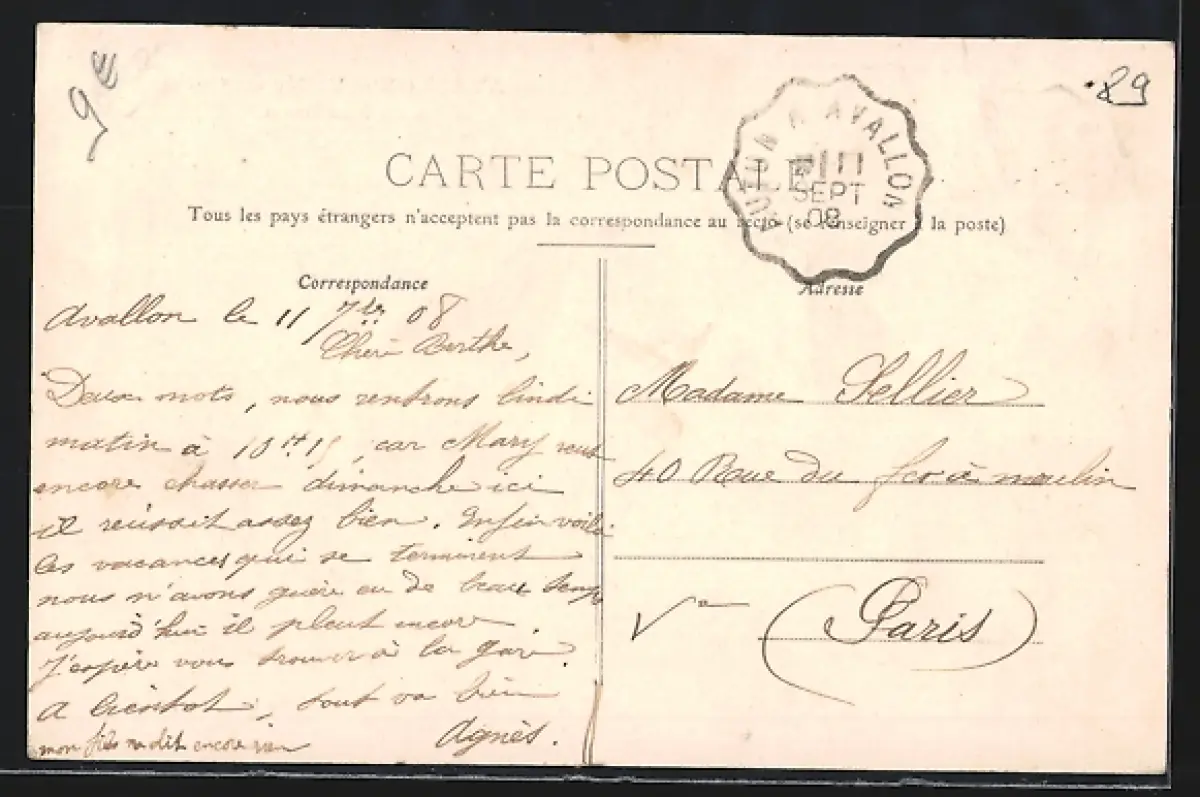 9 €
89
CARTE POSTALE
Tous les pays étrangers n'acceptent pas la correspondance au recto (se renseigner à la poste)
AUTUN A AVALLON
11
SEPT
08
Correspondance
Avallon le 11 7bre 08
Chère Berthe,
Deux mots, nous rentrons lundi
matin à 10 H 15, car Mary veut
encore chasser dimanche ici
il réussit assez bien. Enfin voilà
les vacances qui se terminent
nous n'avons guère eu de beau temps
aujourd'hui il pleut encore.
J'espère vous trouver à la gare.
A bientôt, tout va bien
Agnès.
mon fils ne dit encore rien
Adresse
Madame Sellier
40 Rue du fer à moulin
Vme
(Paris)